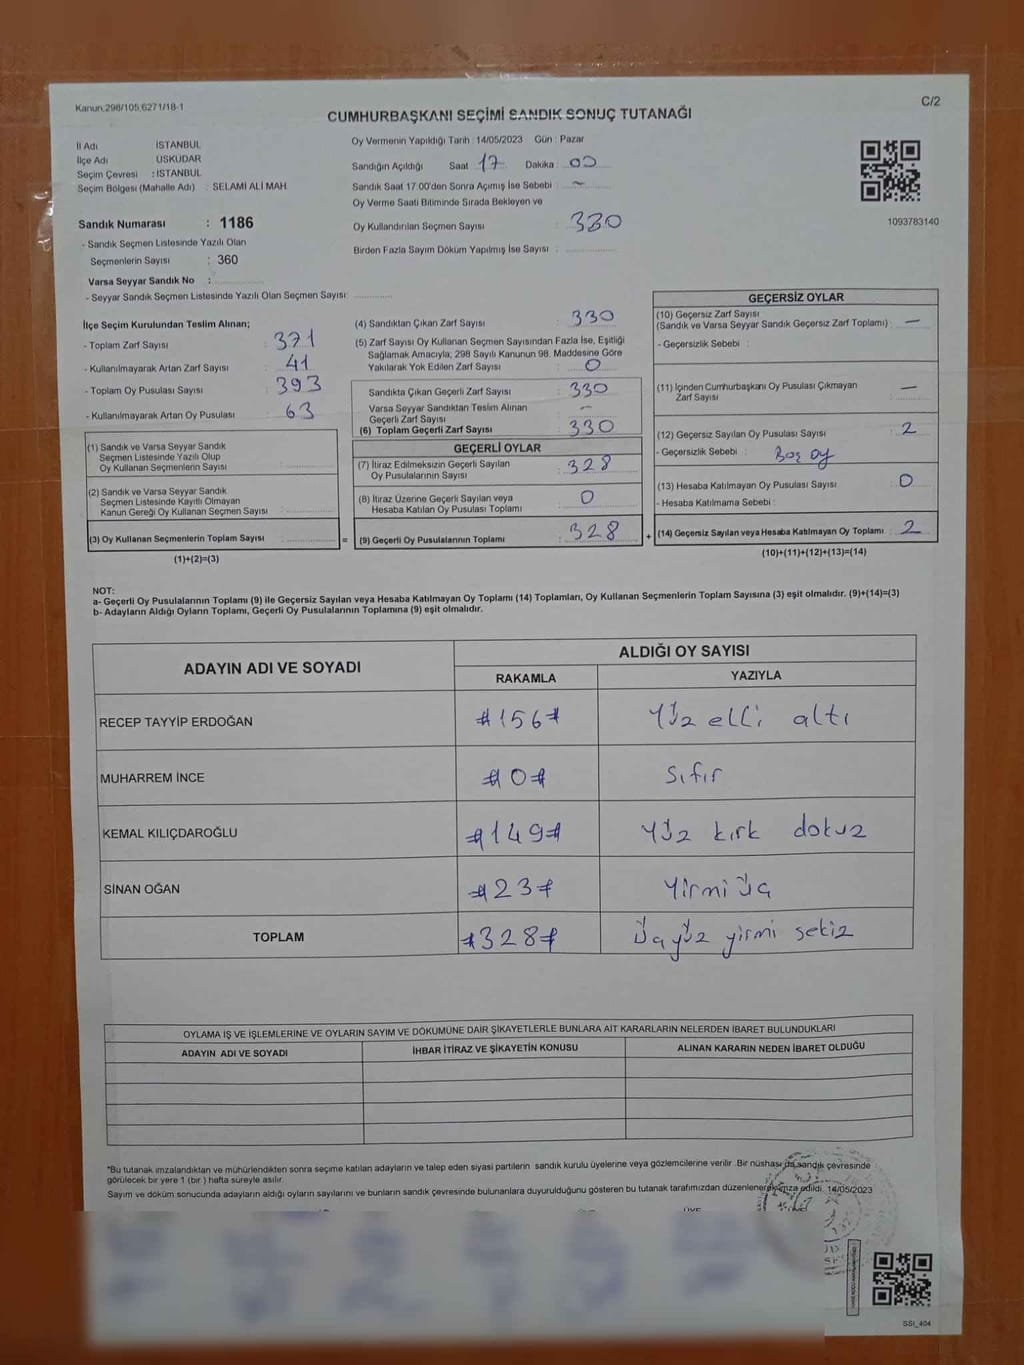 Kanun.298/105,6271/18-1
C/2
CUMHURBAŞKANI SEÇİMİ SANDIK SONUÇ TUTANAĞI
İl Adı İSTANBUL
İlçe Adı ÜSKÜDAR
Seçim Çevresi : İSTANBUL
Seçim Bölgesi (Mahalle Adı) : SELAMİ ALİ MAH
Sandık Numarası : 1186
- Sandık Seçmen Listesinde Yazılı Olan
Seçmenlerin Sayısı : 360
Varsa Seyyar Sandık No :
- Seyyar Sandık Seçmen Listesinde Yazılı Olan Seçmen Sayısı:
Oy Vermenin Yapıldığı Tarih : 14/05/2023 Gün : Pazar
Sandığın Açıldığı Saat 17 Dakika : 00
Sandık Saat 17.00'den Sonra Açımış İse Sebebi : ~
Oy Verme Saati Bitiminde Sırada Bekleyen ve
Oy Kullandırılan Seçmen Sayısı : 330
Birden Fazla Sayım Döküm Yapılmış İse Sayısı :
1093783140
İlçe Seçim Kurulundan Teslim Alınan;
- Toplam Zarf Sayısı : 371
- Kullanılmayarak Artan Zarf Sayısı : 41
- Toplam Oy Pusulası Sayısı : 393
- Kullanılmayarak Artan Oy Pusulası : 63
(1) Sandık ve Varsa Seyyar Sandık
Seçmen Listesinde Yazılı Olup
Oy Kullanan Seçmenlerin Sayısı :
(2) Sandık ve Varsa Seyyar Sandık
Seçmen Listesinde Kayıtlı Olmayan
Kanun Gereği Oy Kullanan Seçmen Sayısı :
(3) Oy Kullanan Seçmenlerin Toplam Sayısı : =
(1)+(2)=(3)
(4) Sandıktan Çıkan Zarf Sayısı : 330
(5) Zarf Sayısı Oy Kullanan Seçmen Sayısından Fazla İse, Eşitliği
Sağlamak Amacıyla, 298 Sayılı Kanunun 98. Maddesine Göre
Yakılarak Yok Edilen Zarf Sayısı : 0
Sandıkta Çıkan Geçerli Zarf Sayısı : 330
Varsa Seyyar Sandıktan Teslim Alınan
Geçerli Zarf Sayısı : -
(6) Toplam Geçerli Zarf Sayısı : 330
GEÇERLİ OYLAR
(7) İtiraz Edilmeksizin Geçerli Sayılan
Oy Pusulalarının Sayısı : 328
(8) İtiraz Üzerine Geçerli Sayılan veya
Hesaba Katılan Oy Pusulası Toplamı : 0
(9) Geçerli Oy Pusulalarının Toplamı : 328 +
GEÇERSİZ OYLAR
(10) Geçersiz Zarf Sayısı
(Sandık ve Varsa Seyyar Sandık Geçersiz Zarf Toplamı) : —
- Geçersizlik Sebebi :
(11) İçinden Cumhurbaşkanı Oy Pusulası Çıkmayan
Zarf Sayısı : —
(12) Geçersiz Sayılan Oy Pusulası Sayısı : 2
- Geçersizlik Sebebi : Boş oy
(13) Hesaba Katılmayan Oy Pusulası Sayısı : 0
- Hesaba Katılmama Sebebi :
(14) Geçersiz Sayılan veya Hesaba Katılmayan Oy Toplamı : 2
(10)+(11)+(12)+(13)=(14)
NOT:
a- Geçerli Oy Pusulalarının Toplamı (9) ile Geçersiz Sayılan veya Hesaba Katılmayan Oy Toplamı (14) Toplamları, Oy Kullanan Seçmenlerin Toplam Sayısına (3) eşit olmalıdır. (9)+(14)=(3)
b- Adayların Aldığı Oyların Toplamı, Geçerli Oy Pusulalarının Toplamına (9) eşit olmalıdır.
ADAYIN ADI VE SOYADI ALDIĞI OY SAYISI
RAKAMLA YAZIYLA
RECEP TAYYİP ERDOĞAN #156# Yüz elli altı
MUHARREM İNCE #0# Sıfır
KEMAL KILIÇDAROĞLU #149# Yüz kırk dokuz
SİNAN OĞAN #23# Yirmi üç
TOPLAM #328# Üçyüz yirmi sekiz
OYLAMA İŞ VE İŞLEMLERİNE VE OYLARIN SAYIM VE DÖKÜMÜNE DAİR ŞİKAYETLERLE BUNLARA AİT KARARLARIN NELERDEN İBARET BULUNDUKLARI
ADAYIN ADI VE SOYADI İHBAR İTİRAZ VE ŞİKAYETİN KONUSU ALINAN KARARIN NEDEN İBARET OLDUĞU
*Bu tutanak imzalandıktan ve mühürlendikten sonra seçime katılan adayların ve talep eden siyasi partilerin sandık kurulu üyelerine veya gözlemcilerine verilir .Bir nüshası da sandık çevresinde
görülecek bir yere 1 (bir ) hafta süreyle asılır.
Sayım ve döküm sonucunda adayların aldığı oyların sayılarını ve bunların sandık çevresinde bulunanlara duyurulduğunu gösteren bu tutanak tarafımızdan düzenlenerek imza edildi. 14/05/2023
ÜYE
SSI_404